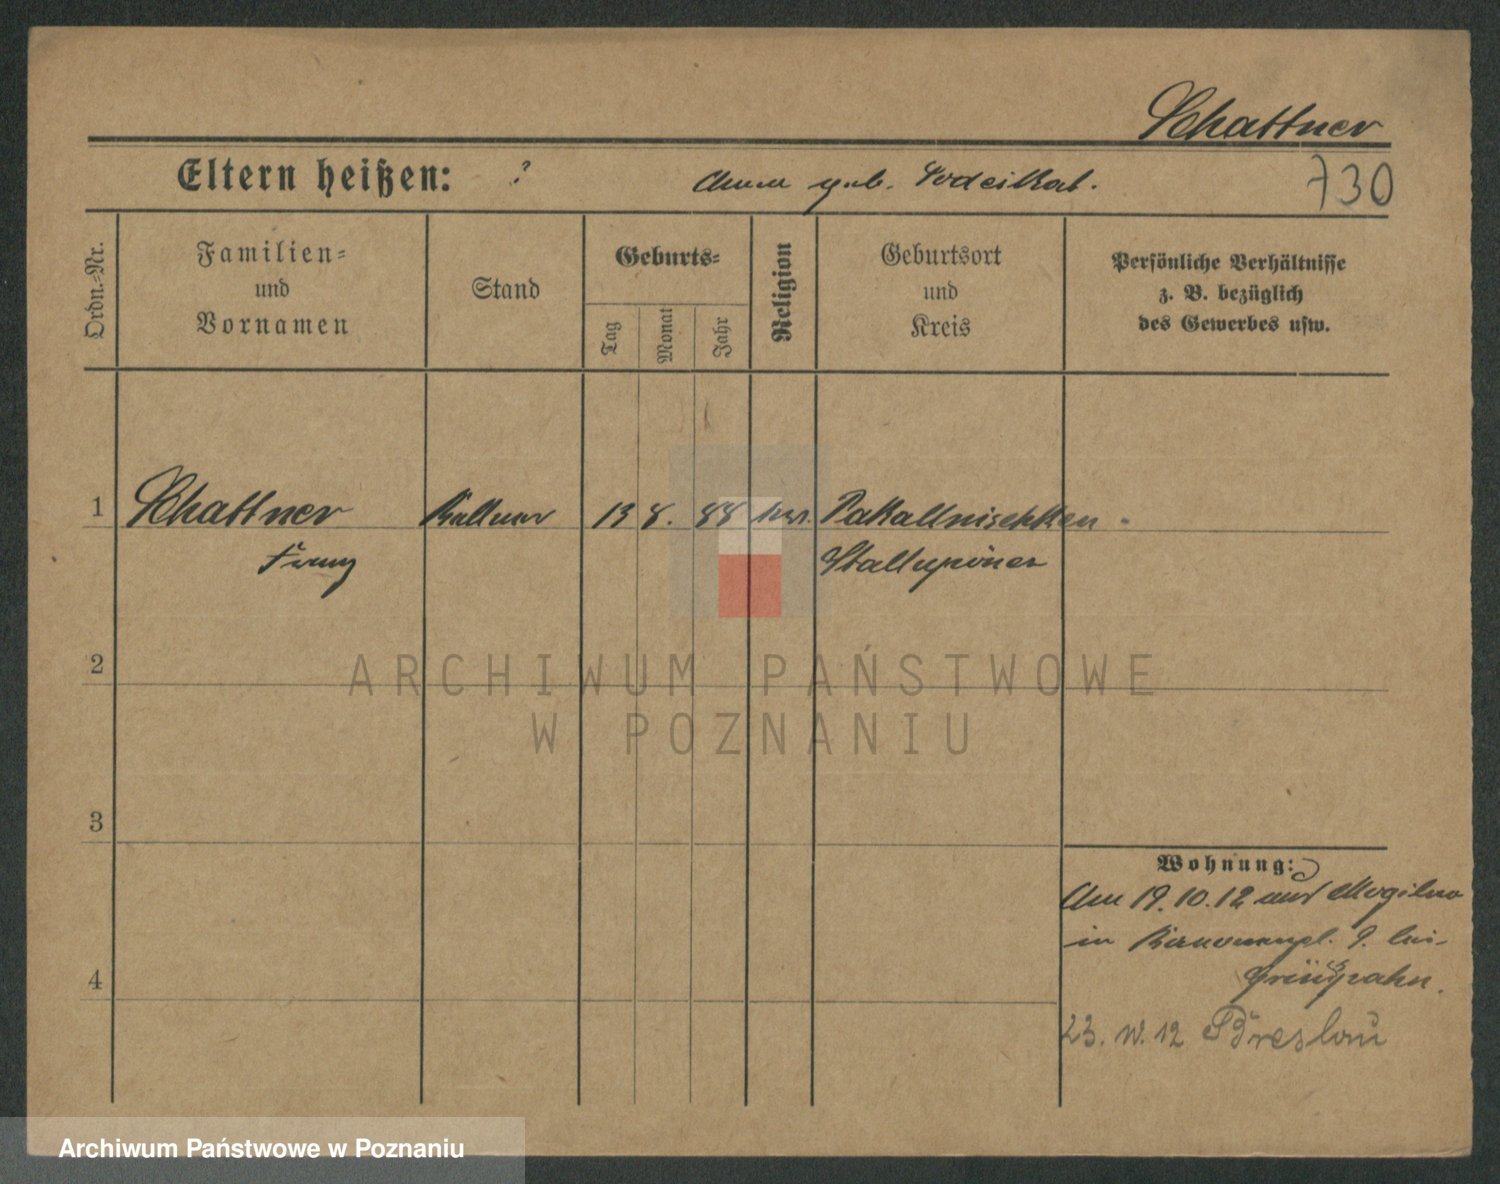 Schattner
Eltern heißen: ? Anna geb. Todeikat.
730
Ordn.-Nr.
Familien-
und
Vornamen
Stand
Geburts-
Tag
Monat
Jahr
Religion
Geburtsort
und
Kreis
Persönliche Verhältnisse
z. B. bezüglich
des Gewerbes usw.
1 Schattner Kellner 13 8. 88 Pakallnischken.
Franz Stallupöner
ARCHIWUM PAŃSTWOWE
W POZNANIU
2
3
4
Wohnung:
Am 19.10.12 aus Mogilno
in 9. bei
23. 12 Breslau
Archiwum Państwowe w Poznaniu